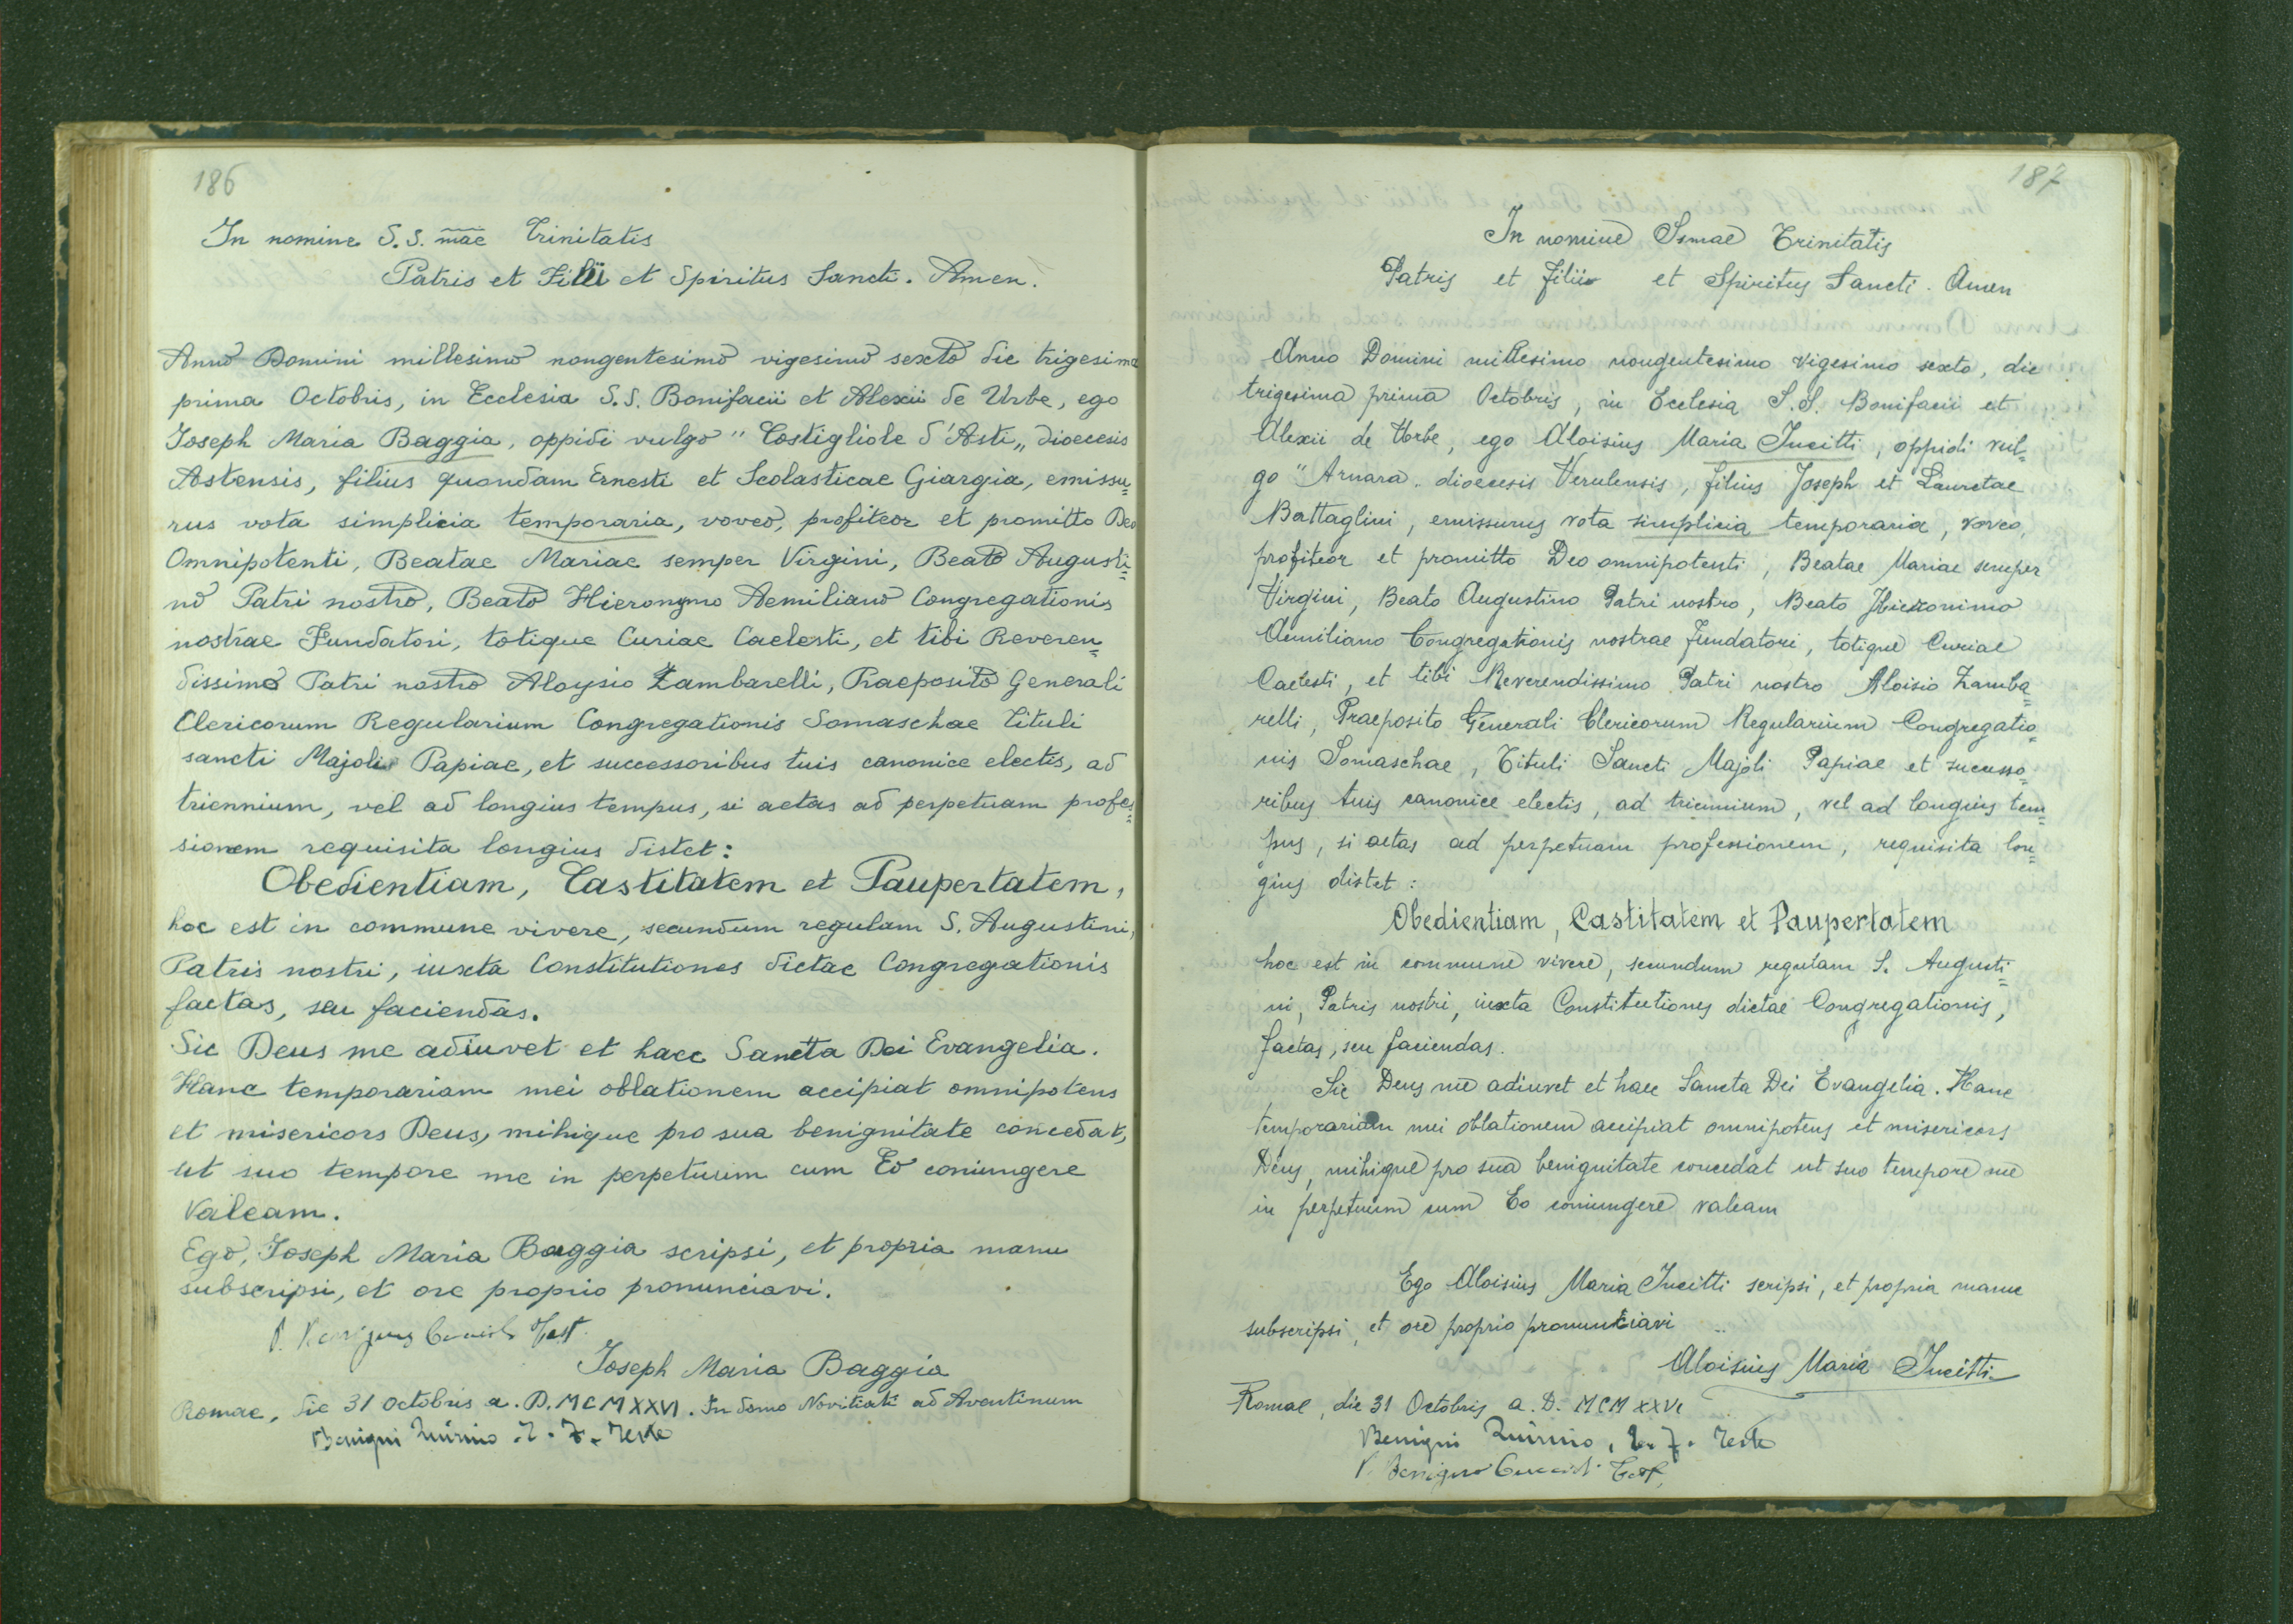 186
In nomine S.S. mae Trinitatis
Patris et Filii et Spiritus Sancti. Amen.
Anno Domini millesimo nongentesimo vigesimo sexto die trigesima
prima Octobris, in Ecclesia S.S. Bonifacii et Alexii de Urbe, ego
Joseph Maria Baggia, oppidi vulgo "Costigliole d'Asti„ dioecesis
Astensis, filius quondam Ernesti et Scolasticae Giargia, emissu=
rus vota simplicia temporaria, voveo, profiteor et promitto Deo
Omnipotenti, Beatae Mariae semper Virgini, Beato Augusti=
no Patri nostro, Beato Hieronymo Aemiliano Congregationis
nostrae Fundatori, totique Curiae Caelesti, et tibi Reveren=
dissimo Patri nostro Aloysio Zambarelli, Praeposito Generali
Clericorum Regularium Congregationis Somaschae tituli
sancti Majoli Papiae, et successoribus tuis canonice electis, ad
triennium, vel ad longius tempus, si aetas ad perpetuam profes=
sionem requisita longius distet:
Obedientiam, Castitatem et Paupertatem,
hoc est in commune vivere, secundum regulam S. Augustini,
Patris nostri, iuxta Constitutiones dictae Congregationis
factas, seu faciendas.
Sic Deus me adiuvet et haec Sancta Dei Evangelia.
Hanc temporariam mei oblationem accipiat omnipotens
et misericors Deus, mihique pro sua benignitate concedat,
ut suo tempore me in perpetuum cum Eo coniungere
valeam.
Ego, Joseph Maria Baggia scripsi, et propria manu
subscripsi, et ore proprio pronunciavi.
P. Benignus Test.
Joseph Maria Baggia
Romae, die 31 Octobris a. D. MCMXXVI. In domo Novitiati ad Aventinum
Benigni Quirino . T. F. Teste
187
In nomine Ssmae Trinitatis
Patris et Filii et Spiritus Sancti. Amen
Anno Domini millesimo nongentesimo vigesimo sexto, die
trigesima prima Octobris, in Ecclesia S.S. Bonifacii et
Alexii de Urbe, ego Aloisius Maria Jucitti, oppidi vul=
go "Arnara. dioecesis Verulensis, filius Joseph et Lauretae
Battaglini, emissurus vota simplicia temporaria, voveo,
profiteor et promitto Deo omnipotenti, Beatae Mariae semper
Virgini, Beato Augustino Patri nostro, Beato Hieronimo
Aemiliano Congregationis nostrae Fundatori, totique Curiae
Caelesti, et tibi Reverendissimo Patri nostro Aloisio Zamba=
relli, Praeposito Generali Clericorum Regularium Congregatio=
nis Somaschae, Tituli Sancti Majoli Papiae et successo=
ribus tuis canonice electis, ad triennium, vel ad longius tem=
pus, si aetas ad perpetuam professionem, requisita lon=
gius distet:
Obedientiam, Castitatem et Paupertatem
hoc est in commune vivere, secundum regulam S. Augusti=
ni, Patris nostri, iuxta Constitutiones dictae Congregationis,
factas, seu faciendas.
Sic Deus me adiuvet et haec Sancta Dei Evangelia. Hanc
temporariam mei oblationem accipiat omnipotens et misericors
Deus, mihique pro sua benignitate concedat ut suo tempore me
in perpetuum cum Eo coniungere valeam
Ego Aloisius Maria Jucitti scripsi, et propria manu
subscripsi, et ore proprio pronunciavi
Aloisius Maria Jucitti
Romae, die 31 Octobris a. D. MCMXXVI
Benigni Quirino, T. F. Teste
P. Benigno Test.